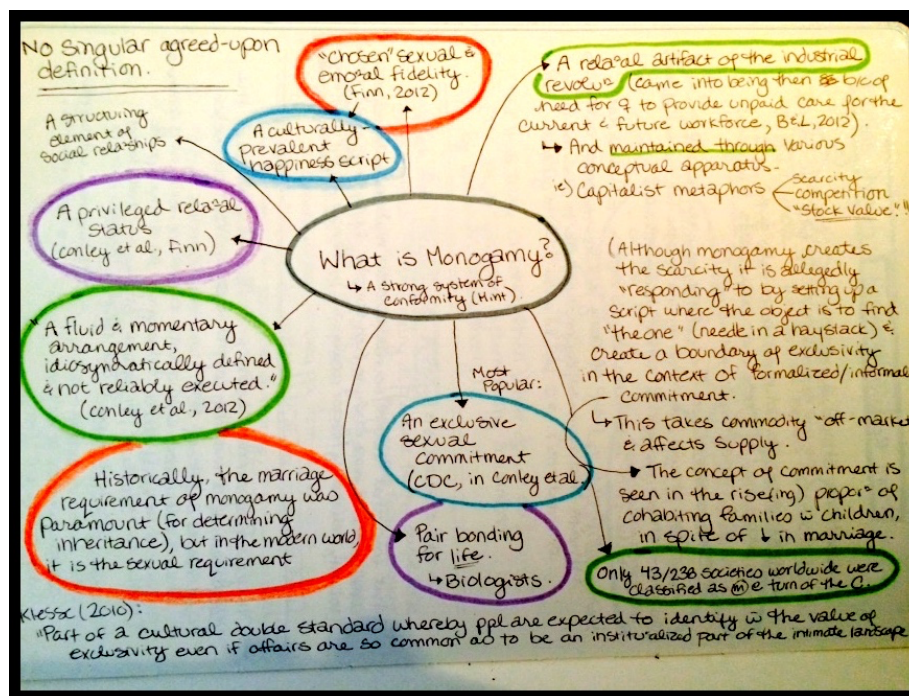 No singular agreed-upon
definition.
"Chosen" sexual &
emoral fidelity.
(Finn, 2012)
A culturally
prevalent
happiness script
A structuring
element of
social relaships
A privileged relaal
status
(Conley et al., Finn)
"A fluid & momentary
arrangement,
idiosyncratically defined
& not reliably executed."
(Conley et al., 2012)
Historically, the marriage
requirement of monogamy was
paramount (for determining
inheritance), but in the modern world,
it is the sexual requirement
What is Monogamy?
↳ A strong system of
conformity (Hint).
Most
Popular:
An exclusive
sexual
commitment
(CDC, in Conley et al.
Pair bonding
for life.
↳ Biologists.
A relaal artifact of the industrial
revolu (came into being then b/c of
need for ♀ to provide unpaid care for the
current & future workforce, B&L, 2012).
↳ And maintained through various
conceptual apparatus.
ie) Capitalist metaphors
scarcity
competition
"stock value"!!
(Although monogamy creates
the scarcity it is allegedly
"responding" to by setting up a
script where the object is to find
"the one" (needle in a haystack) &
create a boundary of exclusivity
in the context of formalized/informal
commitment.
↳ This takes commodity "off-market
& affects supply.
The concept of commitment is
seen in the rise(ing) propor of
cohabiting families w children,
in spite of ↓ in marriage.
Only 43/238 societies worldwide were
classified as m @ turn of the C.
(2010):
"Part of a cultural double standard whereby ppl are expected to identify w the value of
exclusivity even if affairs are so common as to be an instituralized part of the intimate landscape